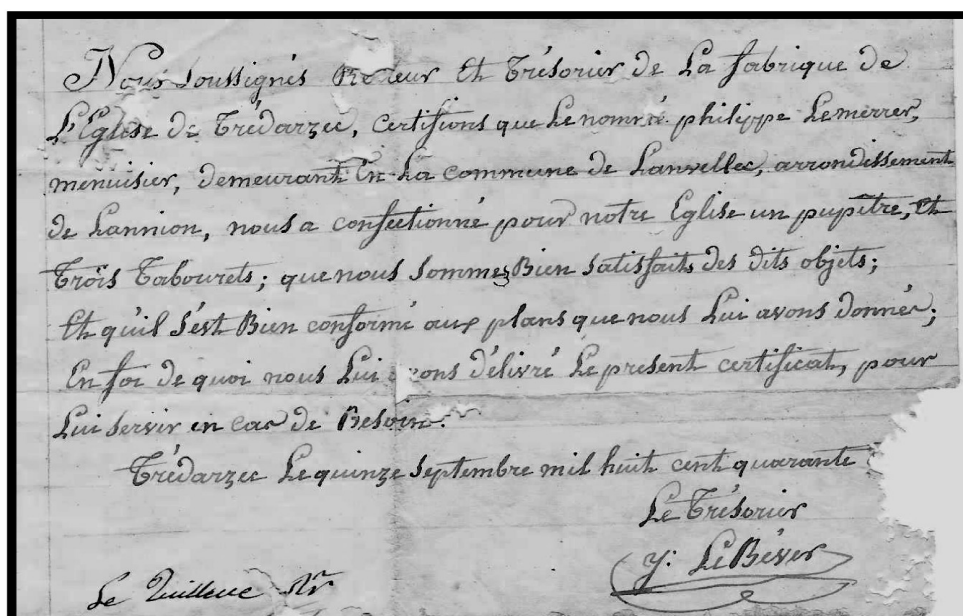 Nous Soussignés Recteur Et Trésorier de La fabrique de
L'Eglise de Trédarzec, certifions que Le nommé philippe Le merrer,
menuisier, demeurant En La commune de Lanvellec, arrondissement
de Lannion, nous a confectionné pour notre Eglise un pupître, Et
Trois Tabourets; que nous Sommes Bien satisfaits des dits objets;
Et qu'il s'est Bien conformé aux plans que nous Lui avons donnés;
En foi de quoi nous Lui avons délivré Le present certificat, pour
Lui servir en cas de Besoin.
Trédarzec Le quinze septembre mil huit cent quarante
Le Trésorier
y. Le Béver
Le Rr